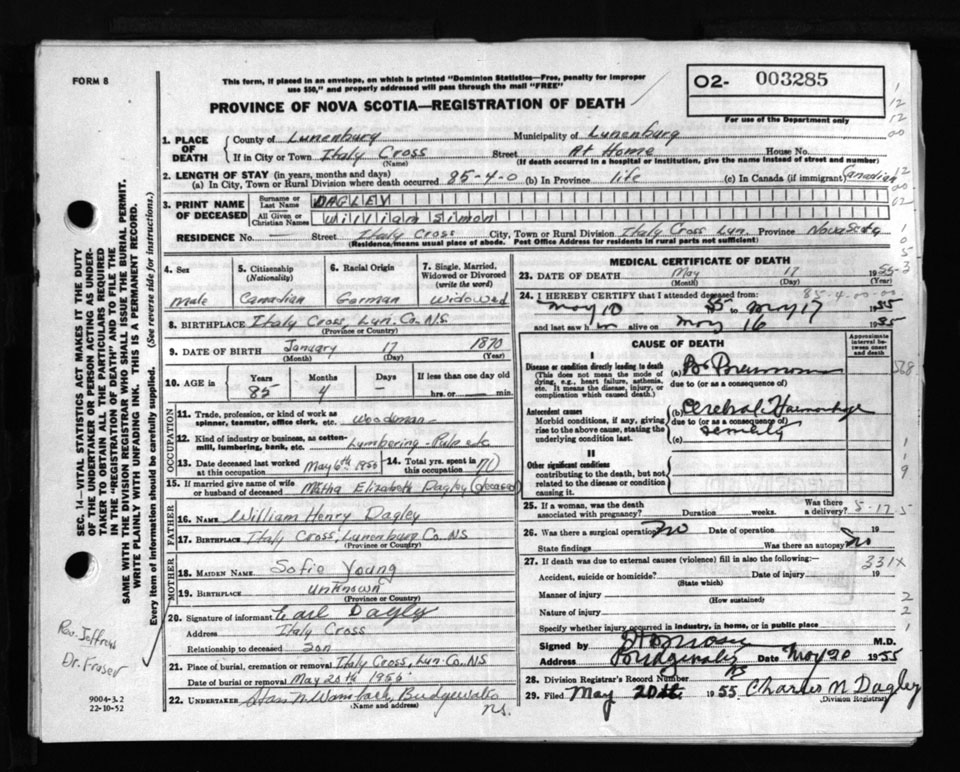 FORM 8
This form, if placed in an envelope, on which is printed "Dominion Statistics—Free, penalty for improper
use $50," and properly addressed will pass through the mail "FREE"
PROVINCE OF NOVA SCOTIA—REGISTRATION OF DEATH
O2- 003285
For use of the Department only
1. PLACE OF DEATH
County of Lunenburg Municipality of Lunenburg
If in City or Town Italy Cross Street At Home House No.
(Name) (If death occurred in a hospital or institution, give the name instead of street and number)
2. LENGTH OF STAY (in years, months and days)
(a) In City, Town or Rural Division where death occurred 85-4-0 (b) In Province life (c) In Canada (if immigrant) Canadian
3. PRINT NAME OF DECEASED
Surname or Last Name DAGLEY
All Given or Christian Names William Simon
RESIDENCE No. — Street Italy Cross City, Town or Rural Division Italy Cross Lun. Province Nova Scotia
(Residence means usual place of abode. Post Office Address for residents in rural parts not sufficient)
4. Sex male
5. Citizenship (Nationality) Canadian
6. Racial Origin German
7. Single, Married, Widowed or Divorced (write the word) Widowed
8. BIRTHPLACE Italy Cross Lun. Co. N.S
(Province or Country)
9. DATE OF BIRTH January 17 1870
(Month) (Day) (Year)
10. AGE in Years 85 Months 4 Days — If less than one day old
hrs. or min.
OCCUPATION
11. Trade, profession, or kind of work as spinner, teamster, office clerk, etc. Woodman
12. Kind of industry or business, as cotton-mill, lumbering, bank, etc. Lumbering - Pulp etc.
13. Date deceased last worked at this occupation May 6th 1955 14. Total yrs. spent in this occupation 71
15. If married give name of wife or husband of deceased Elizabeth Dagley (deceased)
FATHER
16. NAME William Henry Dagley
17. BIRTHPLACE Italy Cross, Lunenburg Co. N.S
(Province or Country)
MOTHER
18. MAIDEN NAME Sofie Young
19. BIRTHPLACE unknown
(Province or Country)
20. Signature of informant Earl Dagley
Address Italy Cross
Relationship to deceased son
21. Place of burial, cremation or removal Italy Cross, Lun. Co. N.S
Date of burial or removal May 20th 1955
22. UNDERTAKER Bridgewater
(Name and address) N.S.
MEDICAL CERTIFICATE OF DEATH
23. DATE OF DEATH May 17 1955
(Month) (Day)
85-4-00-00
24. I HEREBY CERTIFY that I attended deceased from:
May 10 55 to May 17 1955
and last saw him alive on May 16 1955
CAUSE OF DEATH
Approximate interval between onset and death
I
Disease or condition directly leading to death
(This does not mean the mode of dying, e.g., heart failure, asthenia, etc. It means the disease, injury, or complication which caused death.)
(a) Br. Pneumonia
due to (or as a consequence of)
Antecedent causes
Morbid conditions, if any, giving rise to the above cause, stating the underlying condition last.
(b) Cerebral Haemorrhage
due to (or as a consequence of)
(c) Senility
II
Other significant conditions
contributing to the death, but not related to the disease or condition causing it.
25. If a woman, was the death associated with pregnancy? Duration weeks. Was there a delivery?
26. Was there a surgical operation? No Date of operation 19
State findings Was there an autopsy? No
27. If death was due to external causes (violence) fill in also the following:— 331X
Accident, suicide or homicide? Date of injury 19
(State which)
Manner of injury
(How sustained)
Nature of injury
Specify whether injury occurred in industry, in home, or in public place
Signed by M.D.
Address Bridgewater Date May 20 1955
NS
28. Division Registrar's Record Number
29. Filed May 20th 1955 Charles N Dagley
(Division Registrar)
SEC. 14—VITAL STATISTICS ACT MAKES IT THE DUTY
OF THE UNDERTAKER OR PERSON ACTING AS UNDER-
TAKER TO OBTAIN ALL THE PARTICULARS REQUIRED
IN THE "REGISTRATION OF DEATH" AND TO FILE THE
SAME WITH THE DIVISION REGISTRAR WHO SHALL ISSUE THE BURIAL PERMIT.
WRITE PLAINLY WITH UNFADING INK. THIS IS A PERMANENT RECORD.
Every item of information should be carefully supplied. (See reverse side for instructions.)
Rev. Jeffrews
Dr. Fraser
9004-3.2
22-10-52